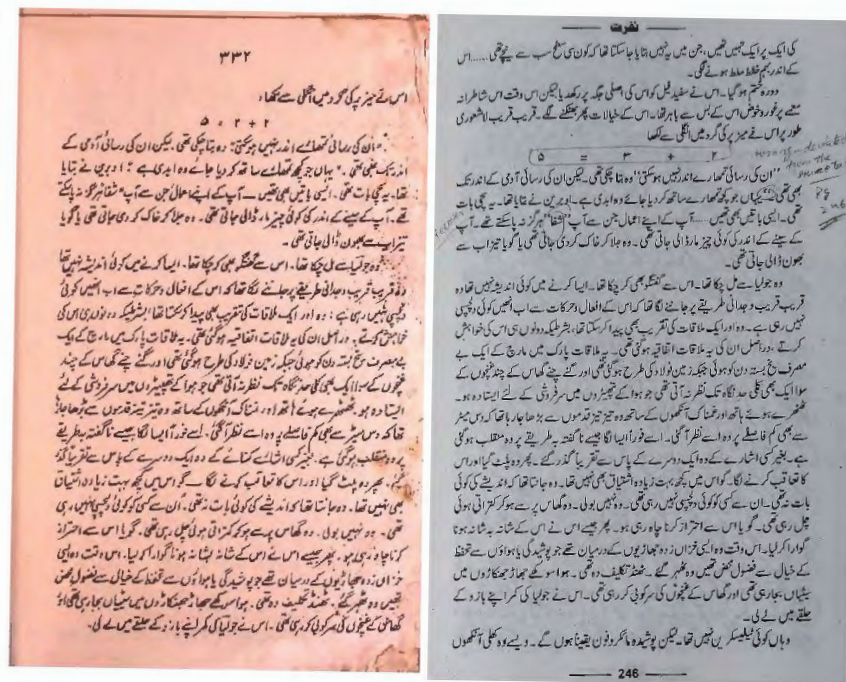 ۳۳۲
اس نے میز پر کی گرد میں انگلی سے لکھا،
۲ + ۲ = ۵
"ان کی رسائی تمھارے اندر نہیں ہو سکتی" وہ بتا چکی تھی۔ لیکن ان کی رسائی آدمی کے
اندر تک تھی۔ "یہاں جو کچھ تمھارے ساتھ کر دیا جائے وہ ابدی ہے" اوبرین نے بتایا
تھا۔ یہ سچی بات تھی۔ ایسی باتیں بھی تھیں۔ آپ کے اپنے اعمال جن سے آپ شفا ہرگز نہ پا سکتے
تھے۔ آپ کے سینے کے اندر کی کوئی چیز مار ڈالی جاتی تھی۔ وہ جلا کر خاک کر دی جاتی تھی یا گویا
تیزاب سے بھون ڈالی جاتی تھی۔
وہ جولیا سے مل چکا تھا۔ اس سے گفتگو بھی کر چکا تھا۔ ایسا کرنے میں کوئی اندیشہ نہیں تھا
وہ قریب قریب وجدانی طریقے پر جاننے لگا تھا کہ اس کے افعال و حرکات سے اب انھیں کوئی
دلچسپی نہیں رہی ہے۔ وہ اور ایک ملاقات کی تقریب بھی پیدا کر سکتا تھا، بشرطیکہ دونوں ہی اس کی
خواہش کرتے۔ دراصل ان کی یہ ملاقات اتفاقیہ ہو گئی تھی۔ یہ ملاقات پارک میں مارچ کے ایک
بے مصرف یخ بستہ دن کو ہوئی جبکہ زمین فولاد کی طرح ہو گئی تھی اور گنے چنے گھاس کے چند
غنچوں کے سوا ایک بھی کلی حد نگاہ تک نظر نہ آتی تھی جو ہوا کے تھپیڑوں میں سرفروشی کے لئے
ایستادہ ہو۔ ٹھٹھرے ہوئے ہاتھ اور نمناک آنکھوں کے ساتھ وہ تیز تیز قدموں سے بڑھا جا رہا
تھا کہ دس میٹر سے بھی کم فاصلے پر وہ اسے نظر آ گئی۔ اسے فوراً ایسا لگا جیسے ناگفتہ بہ طریقے
پر وہ منقلب ہو گئی ہے۔ بغیر کسی اشارے کنائے کے وہ ایک دوسرے کے پاس سے تقریباً گذر
گئے۔ پھر وہ پلٹ گیا اور اس کا تعاقب کرنے لگا۔ گو اس میں کچھ بہت زیادہ اشتیاق
بھی نہیں تھا۔ وہ جانتا تھا کہ اندیشے کی کوئی بات نہ تھی۔ ان سے کسی کو کوئی دلچسپی نہیں رہی
تھی۔ وہ نہیں بولی۔ وہ گھاس پر سے ہو کر کتراتی ہوئی چل رہی تھی۔ گویا اس سے احتراز
کرنا چاہ رہی ہو۔ پھر جیسے اس نے اس کے شانہ بشانہ ہونا گوارا کر لیا۔ اس وقت وہ ایسی
خزاں زدہ جھاڑیوں کے درمیان تھے جو پوشیدگی یا ہواؤں سے تحفظ کے خیال سے فضول محض
تھیں وہ ٹھہر گئے۔ ٹھنڈ تکلیف دہ تھی۔ ہوا سوکھے جھاڑ جھنکاڑوں میں سیٹیاں بجا رہی تھی اور
گھاس کے غنچوں کی سرکوبی کر رہی تھی۔ اس نے جولیا کی کمر اپنے بازو کے حلقے میں لے لی۔
نفرت
کی ایک پر ایک تہیں تھیں، جن میں یہ نہیں بتایا جا سکتا تھا کہ کون سی سطح سب سے نیچے تھی..... اس
کے اندر بہم خلط ملط ہونے لگی۔
دورہ ختم ہو گیا۔ اس نے سفید فیل کو اس کی اصلی جگہ پر رکھ دیا لیکن اس وقت اس شاطرانہ
معمے پر غور و خوض اس کے بس سے باہر تھا۔ اس کے خیالات پھر بھٹکنے لگے۔ قریب قریب لاشعوری
طور پر اس نے میز پر کی گرد میں انگلی سے لکھا
۲ + ۳ = ۵
wrong-deviated from the
Pg 246
"ان کی رسائی تمھارے اندر نہیں ہو سکتی" وہ بتا چکی تھی۔ لیکن ان کی رسائی آدمی کے اندر تک
بھی تھی "یہاں جو کچھ تمھارے ساتھ کر دیا جائے وہ ابدی ہے۔ اوبرین نے بتایا تھا۔ یہ سچی بات
تھی۔ ایسی باتیں بھی تھیں... آپ کے اپنے اعمال جن سے آپ "شفا" ہرگز نہ پا سکتے تھے۔ آپ
کے سینے کے اندر کی کوئی چیز مار ڈالی جاتی تھی۔ وہ جلا کر خاک کر دی جاتی تھی یا گویا تیزاب سے
بھون ڈالی جاتی تھی۔
وہ جولیا سے مل چکا تھا۔ اس سے گفتگو بھی کر چکا تھا۔ ایسا کرنے میں کوئی اندیشہ نہیں تھا وہ
قریب قریب وجدانی طریقے پر جاننے لگا تھا کہ اس کے افعال و حرکات سے اب انھیں کوئی دلچسپی
نہیں رہی ہے۔ وہ اور ایک ملاقات کی تقریب بھی پیدا کر سکتا تھا، بشرطیکہ دونوں ہی اس کی خواہش
کرتے، دراصل ان کی یہ ملاقات اتفاقیہ ہو گئی تھی۔ یہ ملاقات پارک میں مارچ کے ایک بے
مصرف یخ بستہ دن کو ہوئی جبکہ زمین فولاد کی طرح ہو گئی تھی اور گنے چنے گھاس کے چند غنچوں کے
سوا ایک بھی کلی حد نگاہ تک نظر نہ آتی تھی جو ہوا کے تھپیڑوں میں سرفروشی کے لئے ایستادہ ہو۔
ٹھٹھرے ہوئے ہاتھ اور غمناک آنکھوں کے ساتھ وہ تیز تیز قدموں سے بڑھا جا رہا تھا کہ دس میٹر
سے بھی کم فاصلے پر وہ اسے نظر آ گئی۔ اسے فوراً ایسا لگا جیسے ناگفتہ بہ طریقے پر وہ منقلب ہو گئی
ہے۔ بغیر کسی اشارے کے وہ ایک دوسرے کے پاس سے تقریباً گذر گئے۔ پھر وہ پلٹ گیا اور اس
کا تعاقب کرنے لگا۔ گو اس میں کچھ بہت زیادہ اشتیاق بھی نہیں تھا۔ وہ جانتا تھا کہ اندیشے کی کوئی
بات نہ تھی۔ ان سے کسی کو کوئی دلچسپی نہیں رہی تھی۔ وہ نہیں بولی۔ وہ گھاس پر سے ہو کر کتراتی ہوئی
چل رہی تھی۔ گویا اس سے احتراز کرنا چاہ رہی ہو۔ پھر جیسے اس نے اس کے شانہ بہ شانہ ہونا
گوارا کر لیا۔ اس وقت وہ ایسی خزاں زدہ جھاڑیوں کے درمیان تھے جو پوشیدگی یا ہواؤں سے تحفظ
کے خیال سے فضول محض تھیں وہ ٹھہر گئے۔ ٹھنڈ تکلیف دہ تھی۔ ہوا سوکھے جھاڑ جھنکاڑوں میں
سیٹیاں بجا رہی تھی اور گھاس کے غنچوں کی سرکوبی کر رہی تھی۔ اس نے جولیا کی کمر اپنے بازو کے
حلقے میں لے لی۔
وہاں کوئی ٹیلیسکرین نہیں تھا۔ لیکن پوشیدہ مائکروفون یقیناً ہوں گے۔ ویسے وہ کھلی آنکھوں
246